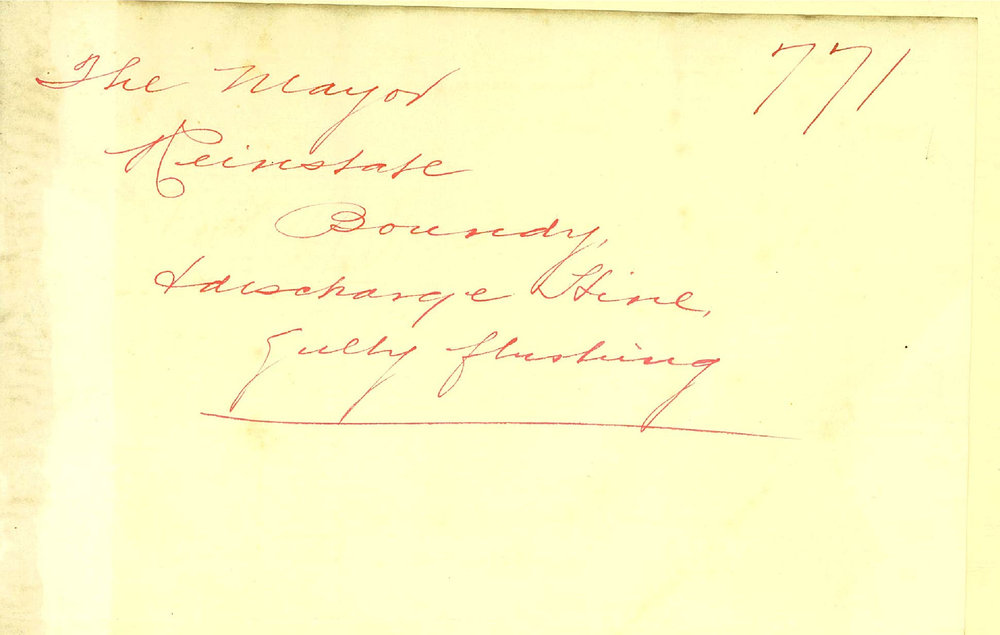 The Mayor 771
Reinstate
Boundy,
& discharge Hine,
Gully flushing